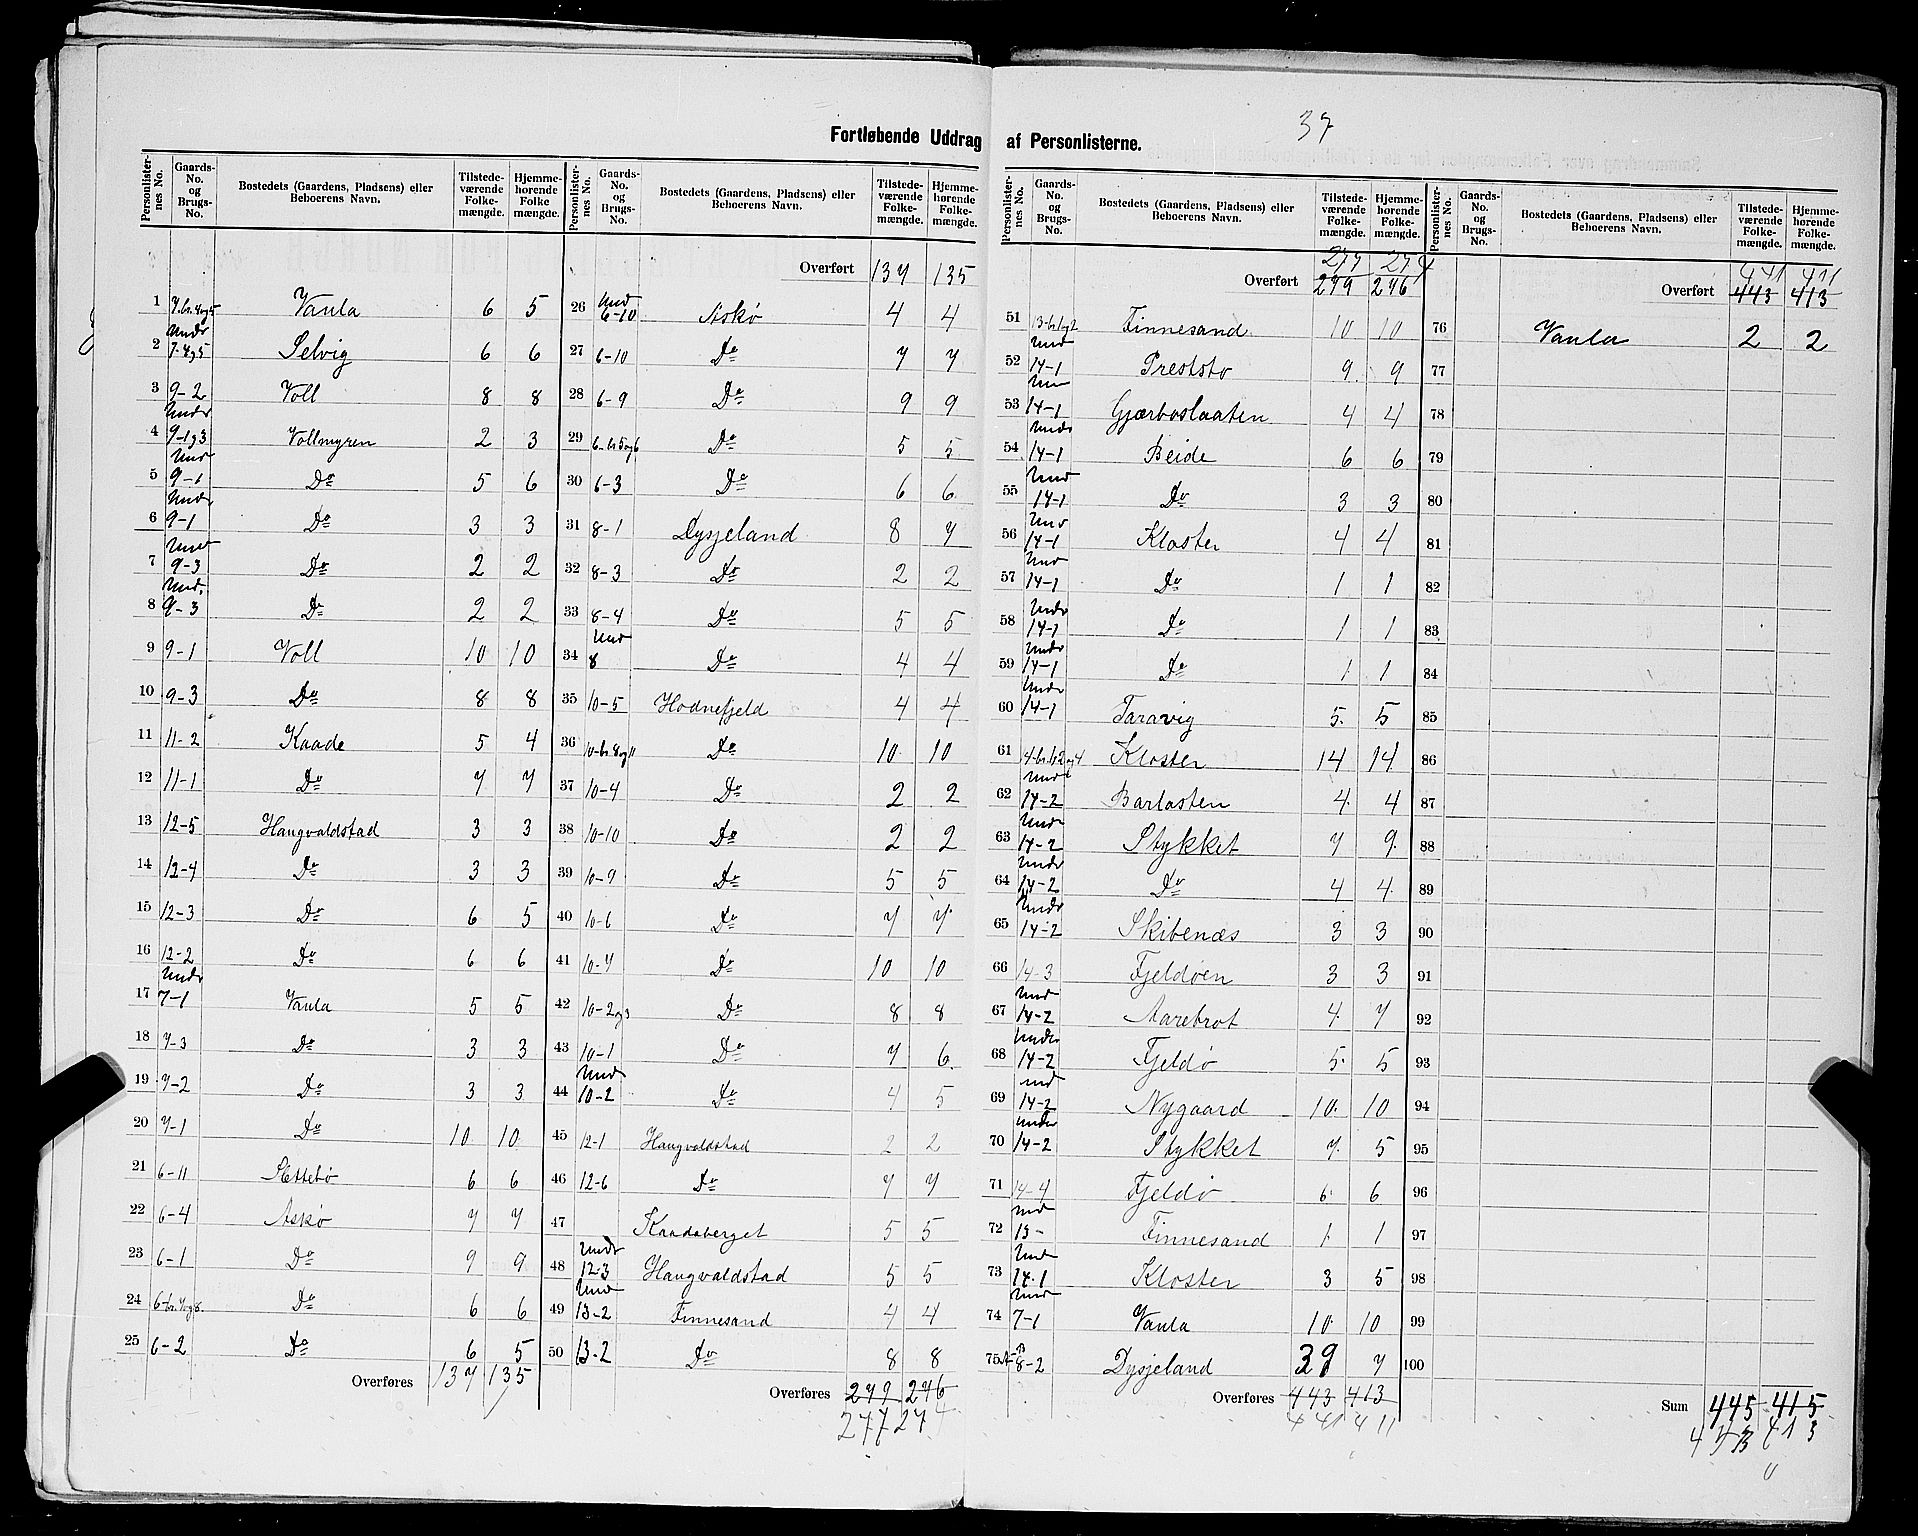 37
Fortløbende Uddrag af Personlisterne.
Personlister-nes No. Gaards-No. og Brugs-No. Bostedets (Gaardens, Pladsens) eller Beboerens Navn. Tilstede-værende Folke-mængde. Hjemme-hørende Folke mængde.
1 7-br.4og5 Vaula 6 5
2 Undr 7-4og5 Selvig 6 6
3 9-2 Voll 8 8
4 Undr 9-1og3 Vollmyren 2 3
5 Und 9-1 Do 5 6
6 Undr 9-1 Do 3 3
7 Und 9-3 Do 2 2
8 Und. 9-3 Do 2 2
9 9-1 Voll 10 10
10 9-3 Do 8 8
11 11-2 Kaade 5 4
12 11-1 Do 7 7
13 12-5 Haugvaldstad 3 3
14 12-4 Do 3 3
15 12-3 Do 6 5
16 12-2 Do 6 6
17 Undr 7-1 Vaula 5 5
18 7-3 Do 3 3
19 7-2 Do 3 3
20 7-1 Do 10 10
21 6-11 Slettebø 6 6
22 6-4 Askø 7 7
23 6-1 Do 9 9
24 6-br.7og8 Do 6 6
25 6-2 Do 6 5
Overføres 137 135
Personlister-nes No. Gaards-No. og Brugs-No. Bostedets (Gaardens, Pladsens) eller Beboerens Navn. Tilstede-værende Folke-mængde. Hjemme-hørende Folke-mængde.
Overført 137 135
26 Und 6-10 Askø 4 4
27 6-10 Do 7 7
28 6-9 Do 9 9
29 6-br5og6 Do 5 5
30 6-3 Do 6 6
31 8-1 Dysjeland 8 7
32 8-3 Do 2 2
33 8-4 Do 5 5
34 Und 8 Do 4 4
35 10-5 Hodnefjeld 4 4
36 10-br.8og11 Do 10 10
37 10-4 Do 2 2
38 10-10 Do 2 2
39 10-9 Do 5 5
40 10-6 Do 7 7
41 10-7 Do 10 10
42 10-2og3 Do 8 8
43 10-1 Do 7 6
44 Und 10-2 Do 4 5
45 12-1 Haugvaldstad 2 2
46 12-6 Do 7 7
47 Kaadaberget 5 5
48 Undr 12-3 Haugvaldstad 5 5
49 Und 13-2 Finnesand 4 4
50 13-2 Do 8 8
Overføres 279 276
277 274
Personlister-nes No. Gaards-No. og Brugs-No. Bostedets (Gaardens, Pladsens) eller Beboerens Navn. Tilstede-værende Folke-mængde. Hjemme-hørende Folke-mængde.
277 274
Overført 279 276
51 13-br1og2 Finnesand 10 10
52 Und 14-1 Preststo 9 9
53 Und 14-1 Gjærboslaaten 4 4
54 Undr 14-1 Beide 6 6
55 Und 14-1 Do 3 3
56 Und 14-1 Kloster 4 4
57 Und 14-1 Do 1 1
58 Undr 14-1 Do 1 1
59 Undr 14-1 Do 1 1
60 Undr 14-1 Taravig 5 5
61 Kloster 14 14
62 Und 14-2 Barlasten 4 4
63 Undr 14-2 Stykket 7 9
64 Undr 14-2 Do 4 4
65 Undr 14-2 Skibenæs 3 3
66 14-3 Fjeldøen 3 3
67 Und 14-2 Aarebrot 4 7
68 Under 14-2 Fjeldø 5 5
69 und 14-2 Nygaard 10 10
70 Under 14-2 Stykket 7 5
71 14-4 Fjeldø 6 6
72 und 13- Finnesand 1 1
73 Und 14.1 Kloster 3 5
74 Und 7-1 Vaula 10 10
75 8-2 Dysjeland 39 7
Overføres 443 413
441 411
Personlister-nes No. Gaards-No. og Brugs-No. Bostedets (Gaardens, Pladsens) eller Beboerens Navn. Tilstede-værende Folke-mængde. Hjemme-hørende Folke-mængde.
441 411
Overført 443 413
76 Vaula 2 2
77
78
79
80
81
82
83
84
85
86
87
88
89
90
91
92
93
94
95
96
97
98
99
100
Sum 445 415
443 413